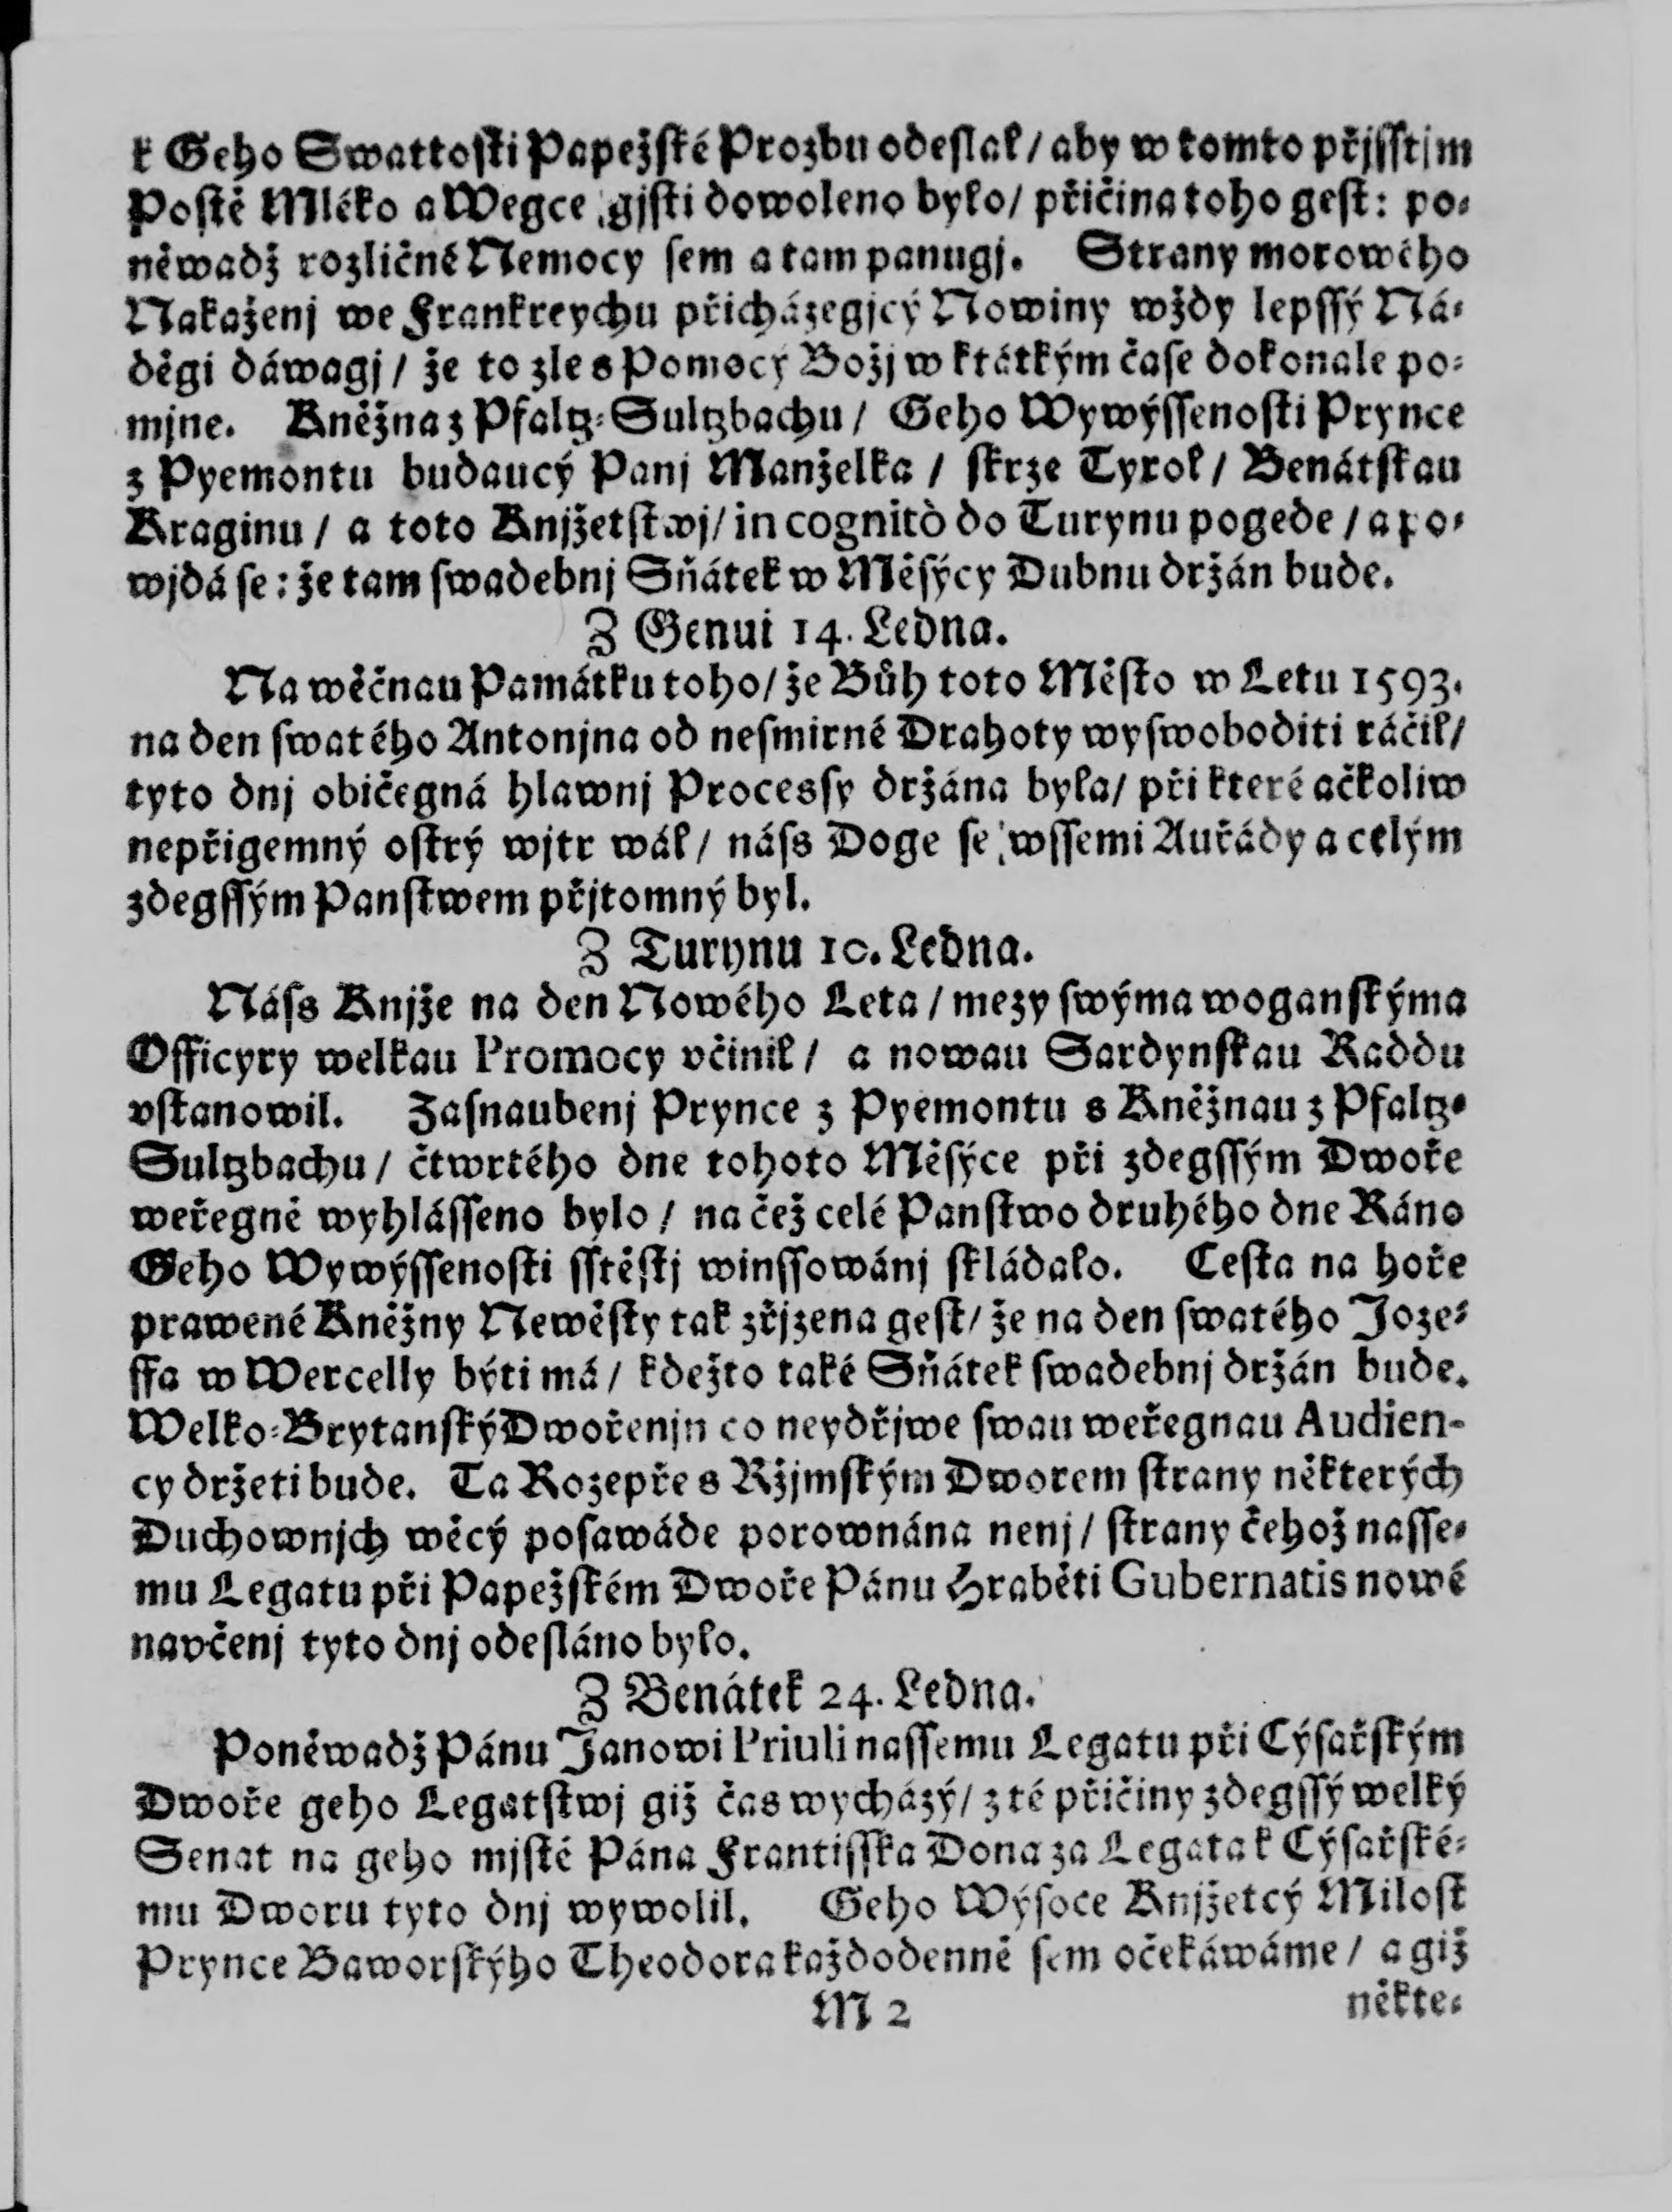 k Geho Swattosti Papežské Prozbu odeslal / aby w tomto přjsstjm
Postě Mléko a Wegce gjsti dowoleno bylo / přičina toho gest: po-
něwadž rozličné Nemocy sem a tam panugj. Strany morowého
Nakaženj we Frankreychu přicházegjcý Nowiny wždy lepssý Ná-
děgi dáwagj / že to zle s Pomocý Božj w krátkým čase dokonale po-
mjne. Kněžna z Pfaltz-Sultzbachu / Geho Wywýssenosti Prynce
z Pyemontu budaucý Panj Manželka / skrze Tyrol / Benátskau
Kraginu / a toto Knjžetstwj / in cognitò do Turynu pogede / a po-
wjdá se: že tam swadebnj Sňátek w Měsýcy Dubnu držán bude.
Z Genui 14. Ledna.
Na wěčnau Památku toho / že Bůh toto Město w Letu 1593.
na den swatého Antonjna od nesmirné Drahoty wyswoboditi ráčil /
tyto dnj običegná hlawnj Processy držána byla / při které ačkoliw
nepřigemný ostrý wjtr wál / náss Doge se wssemi Auřády a celým
zdegssým Panstwem přjtomný byl.
Z Turynu 10. Ledna.
Náss Knjže na den Nowého Leta / mezy swýma woganskýma
Officyry welkau Promocy včinil / a nowau Sardynskau Raddu
vstanowil. Zasnaubenj Prynce z Pyemontu s Kněžnau z Pfaltz-
Sultzbachu / čtwrtého dne tohoto Měsýce při zdegssým Dwoře
weřegně wyhlásseno bylo / na čež celé Panstwo druhého dne Ráno
Geho Wywýssenosti sstěstj winssowánj skládalo. Cesta na hoře
prawené Kněžny Newěsty tak zřjzena gest / že na den swatého Joze-
ffa w Wercelly býti má / kdežto také Sňátek swadebnj držán bude.
Welko-Brytanský Dwořenjn co neydřjwe swau weřegnau Audien-
cy držeti bude. Ta Rozepře s Ržjmským Dworem strany některých
Duchownjch wěcý posawáde porownána nenj / strany čehož nasse-
mu Legatu při Papežském Dwoře Pánu Hraběti Gubernatis nowé
navčenj tyto dnj odesláno bylo.
Z Benátek 24. Ledna.
Poněwadž Pánu Janowi Priuli nassemu Legatu při Cýsařským
Dwoře geho Legatstwj giž čas wycházý / z té přičiny zdegssý welký
Senat na geho mjstě Pána Frantisska Dona za Legata k Cýsařské-
mu Dworu tyto dnj wywolil. Geho Wýsoce Knjžetcý Milost
Prynce Baworskýho Theodora každodenně sem očekáwáme / a giž
M 2 někte-